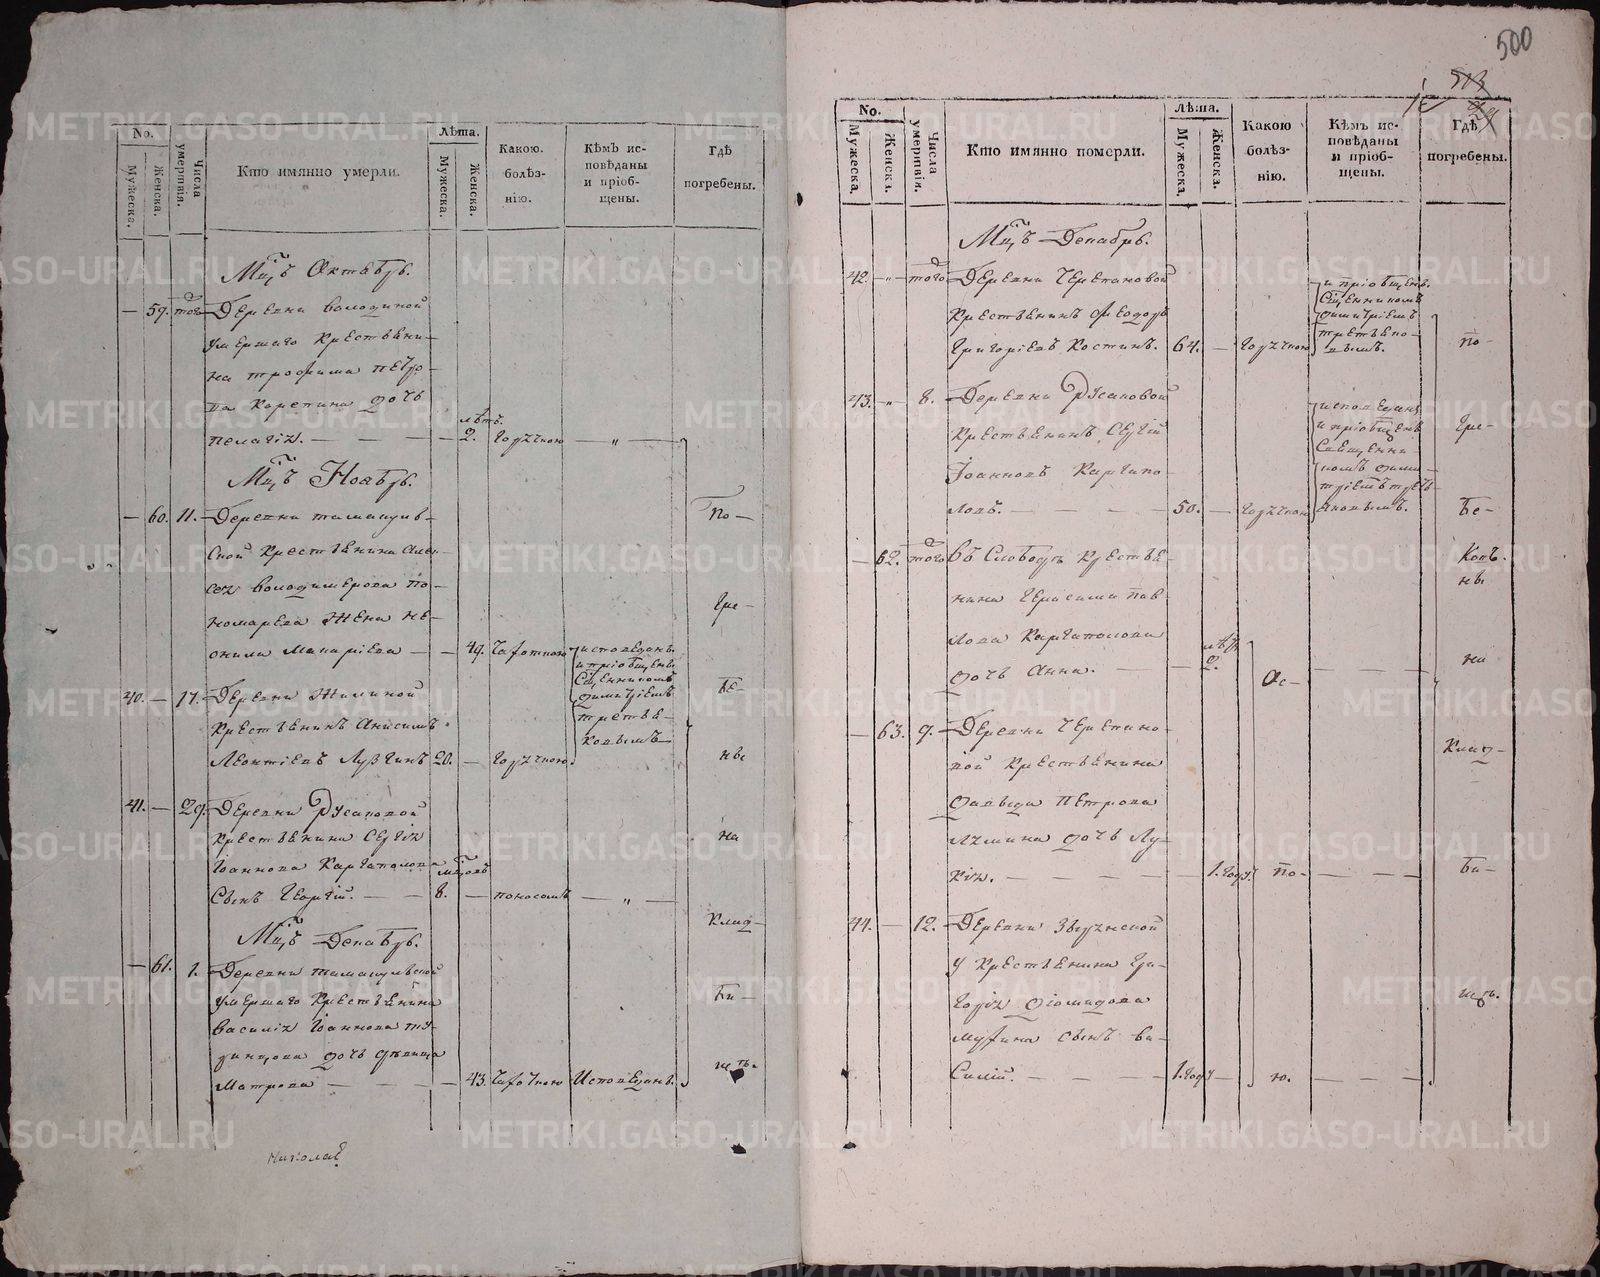 500
No.
Мужеска.
Женска.
Числа умертвія.
Кто имянно умерли.
Лѣта.
Мужеска.
Женска.
Какою. болѣз- нію.
Кѣмъ ис- повѣданы и пріоб- щены.
Гдѣ погребены.
Мцъ Октябрь.
— 59. того Деревни Володиной
умершаго крестьяни-
на Трофима Петро-
ва Карепина дочь
лѣтъ.
Пелагія. — — — — 2. горячкою — „ —
Мцъ Ноябрь.
— 60. 11. Деревни Тамакул-
ской крестьянина Але-
ксея Володимерова По-
номарева жена
Макаріева — — 49. чахоткою исповедана
и пріобщена
Сщенникомъ
Димитріемъ
Третья-
ковымъ
40. — 17. Деревни Жилиной
крестьянинъ Анисимъ
Леонтіевъ Лузгинъ 20. — горячкою
41. — 29. Деревни Русаковой
крестьянина Сергія
Іоаннова Каргаполова
мцовъ
сынъ Георгій. — — 8. — поносомъ — „ —
Мцъ Декабрь.
— 61. 1. Деревни Тамакульской
умершаго крестьянина
Василія Іоаннова
дочь девица
Матрона — — — — 43. чахоткою Исповедана
По-
гре-
бе-
ны
на
клад-
би-
щѣ.
No.
Мужеска.
Женска.
Числа умертвія.
Кто имянно померли.
Лѣта.
Мужеска.
Женска.
Какою болѣз- нію.
Кѣмъ ис- повѣданы и пріоб- щены.
Гдѣ погребены.
Мцъ Декабрь.
42. — „ — того Деревни Черепановой
крестьянинъ Феодоръ
Григоріевъ Костинъ. 64. — горячкою
и пріобщенъ
Сщенникомъ
Димитріемъ
Третьяко-
вымъ.
43. — „ 8. Деревни Русаковой
крестьянинъ Сергій
Іоанновъ Каргапо-
ловъ. — — — — 50. — горячкою
исповеданъ
и пріобщенъ
Священни-
комъ Дими-
тріемъ Треть-
яковымъ.
— 62. того Въ Слободѣ крестья-
нина Герасима Пав-
лова Каргаполова
дочь Анна. — — 2. — —
— 63. 9. Деревни Черепано-
вой крестьянина
Фадѣя Петрова
дочь Лу-
кія. — — — — 1. году. — — —
44. — 12. Деревни Зырянской
у крестьянина Гри-
горія Діомидова
сынъ Ва-
силій. — — — 1. году — — — —
по-
гре-
бе-
ны
на
клад-
би-
щѣ.
Николае
METRIKI.GASO-URAL.RU